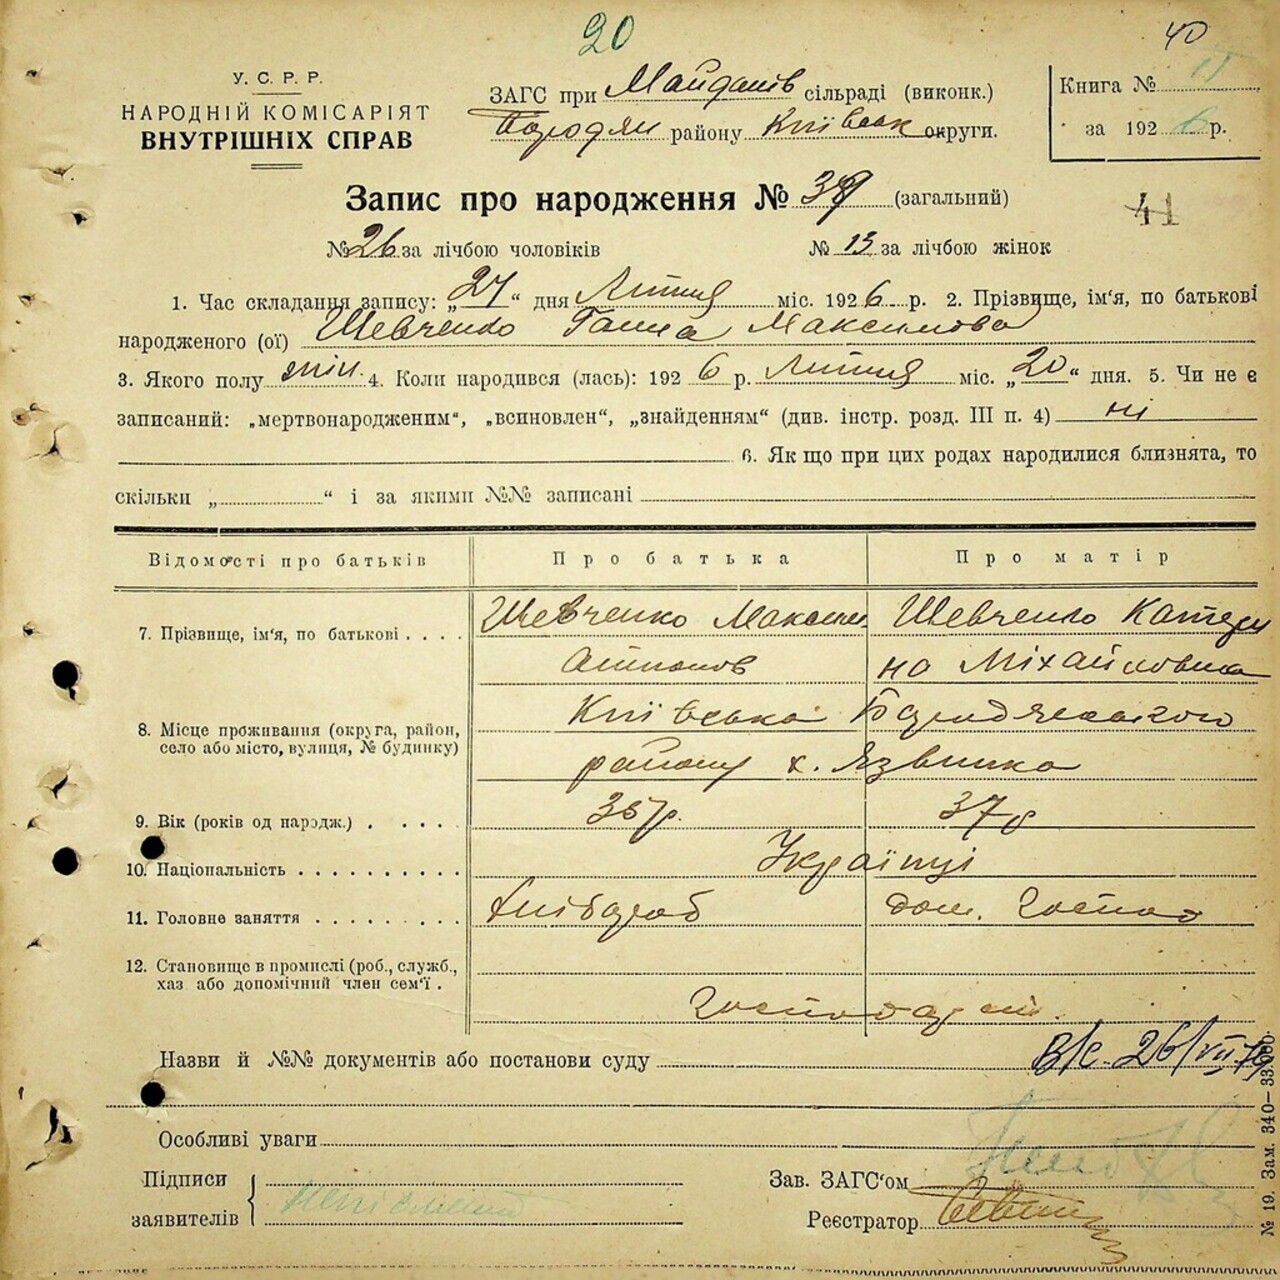 20
40
У. С. Р. Р.
НАРОДНІЙ КОМІСАРІЯТ
ВНУТРІШНІХ СПРАВ
ЗАГС при Майданів сільраді (виконк.)
Бородян району Київськ округи.
Книга №
за 1926 р.
Запис про народження № 39 (загальний)
41
№ 26 за лічбою чоловіків № 13 за лічбою жінок
1. Час складання запису: „27“ дня Липня міс. 1926 р. 2. Прізвище, ім'я, по батькові
народженого (ої) Шевченко Ганна Максимова
3. Якого полу жін. 4. Коли народився (лась): 1926 р. Липня міс. „20“ дня. 5. Чи не є
записаний: „мертвонародженим“, „всиновлен“, „знайденням“ (див. інстр. розд. III п. 4) ні
6. Як що при цих родах народилися близнята, то
скільки „ “ і за якими №№ записані
Відомості про батьків Про батька Про матір
7. Прізвище, ім'я, по батькові . . . . Шевченко Максим Шевченко Катери
Антонов на Міхайловна
8. Місце проживання (округа, район, Київська Бородянського
село або місто, вулиця, № будинку) району х. Язвинка
9. Вік (років од народж.) . . . . . 36 р. 37 р
10. Національність . . . . . . . . . . Українці
11. Головне заняття . . . . . . . . . Хлібороб дом. господ
12. Становище в промислі (роб., служб.,
хаз або допомічний член сем'ї .
Господар
Назви й №№ документів або постанови суду В/с 26/VII
Особливі уваги
Підписи
заявителів { неписьменні
Зав. ЗАГС'ом
Реєстратор
№ 19. Зам. 340—33.000.